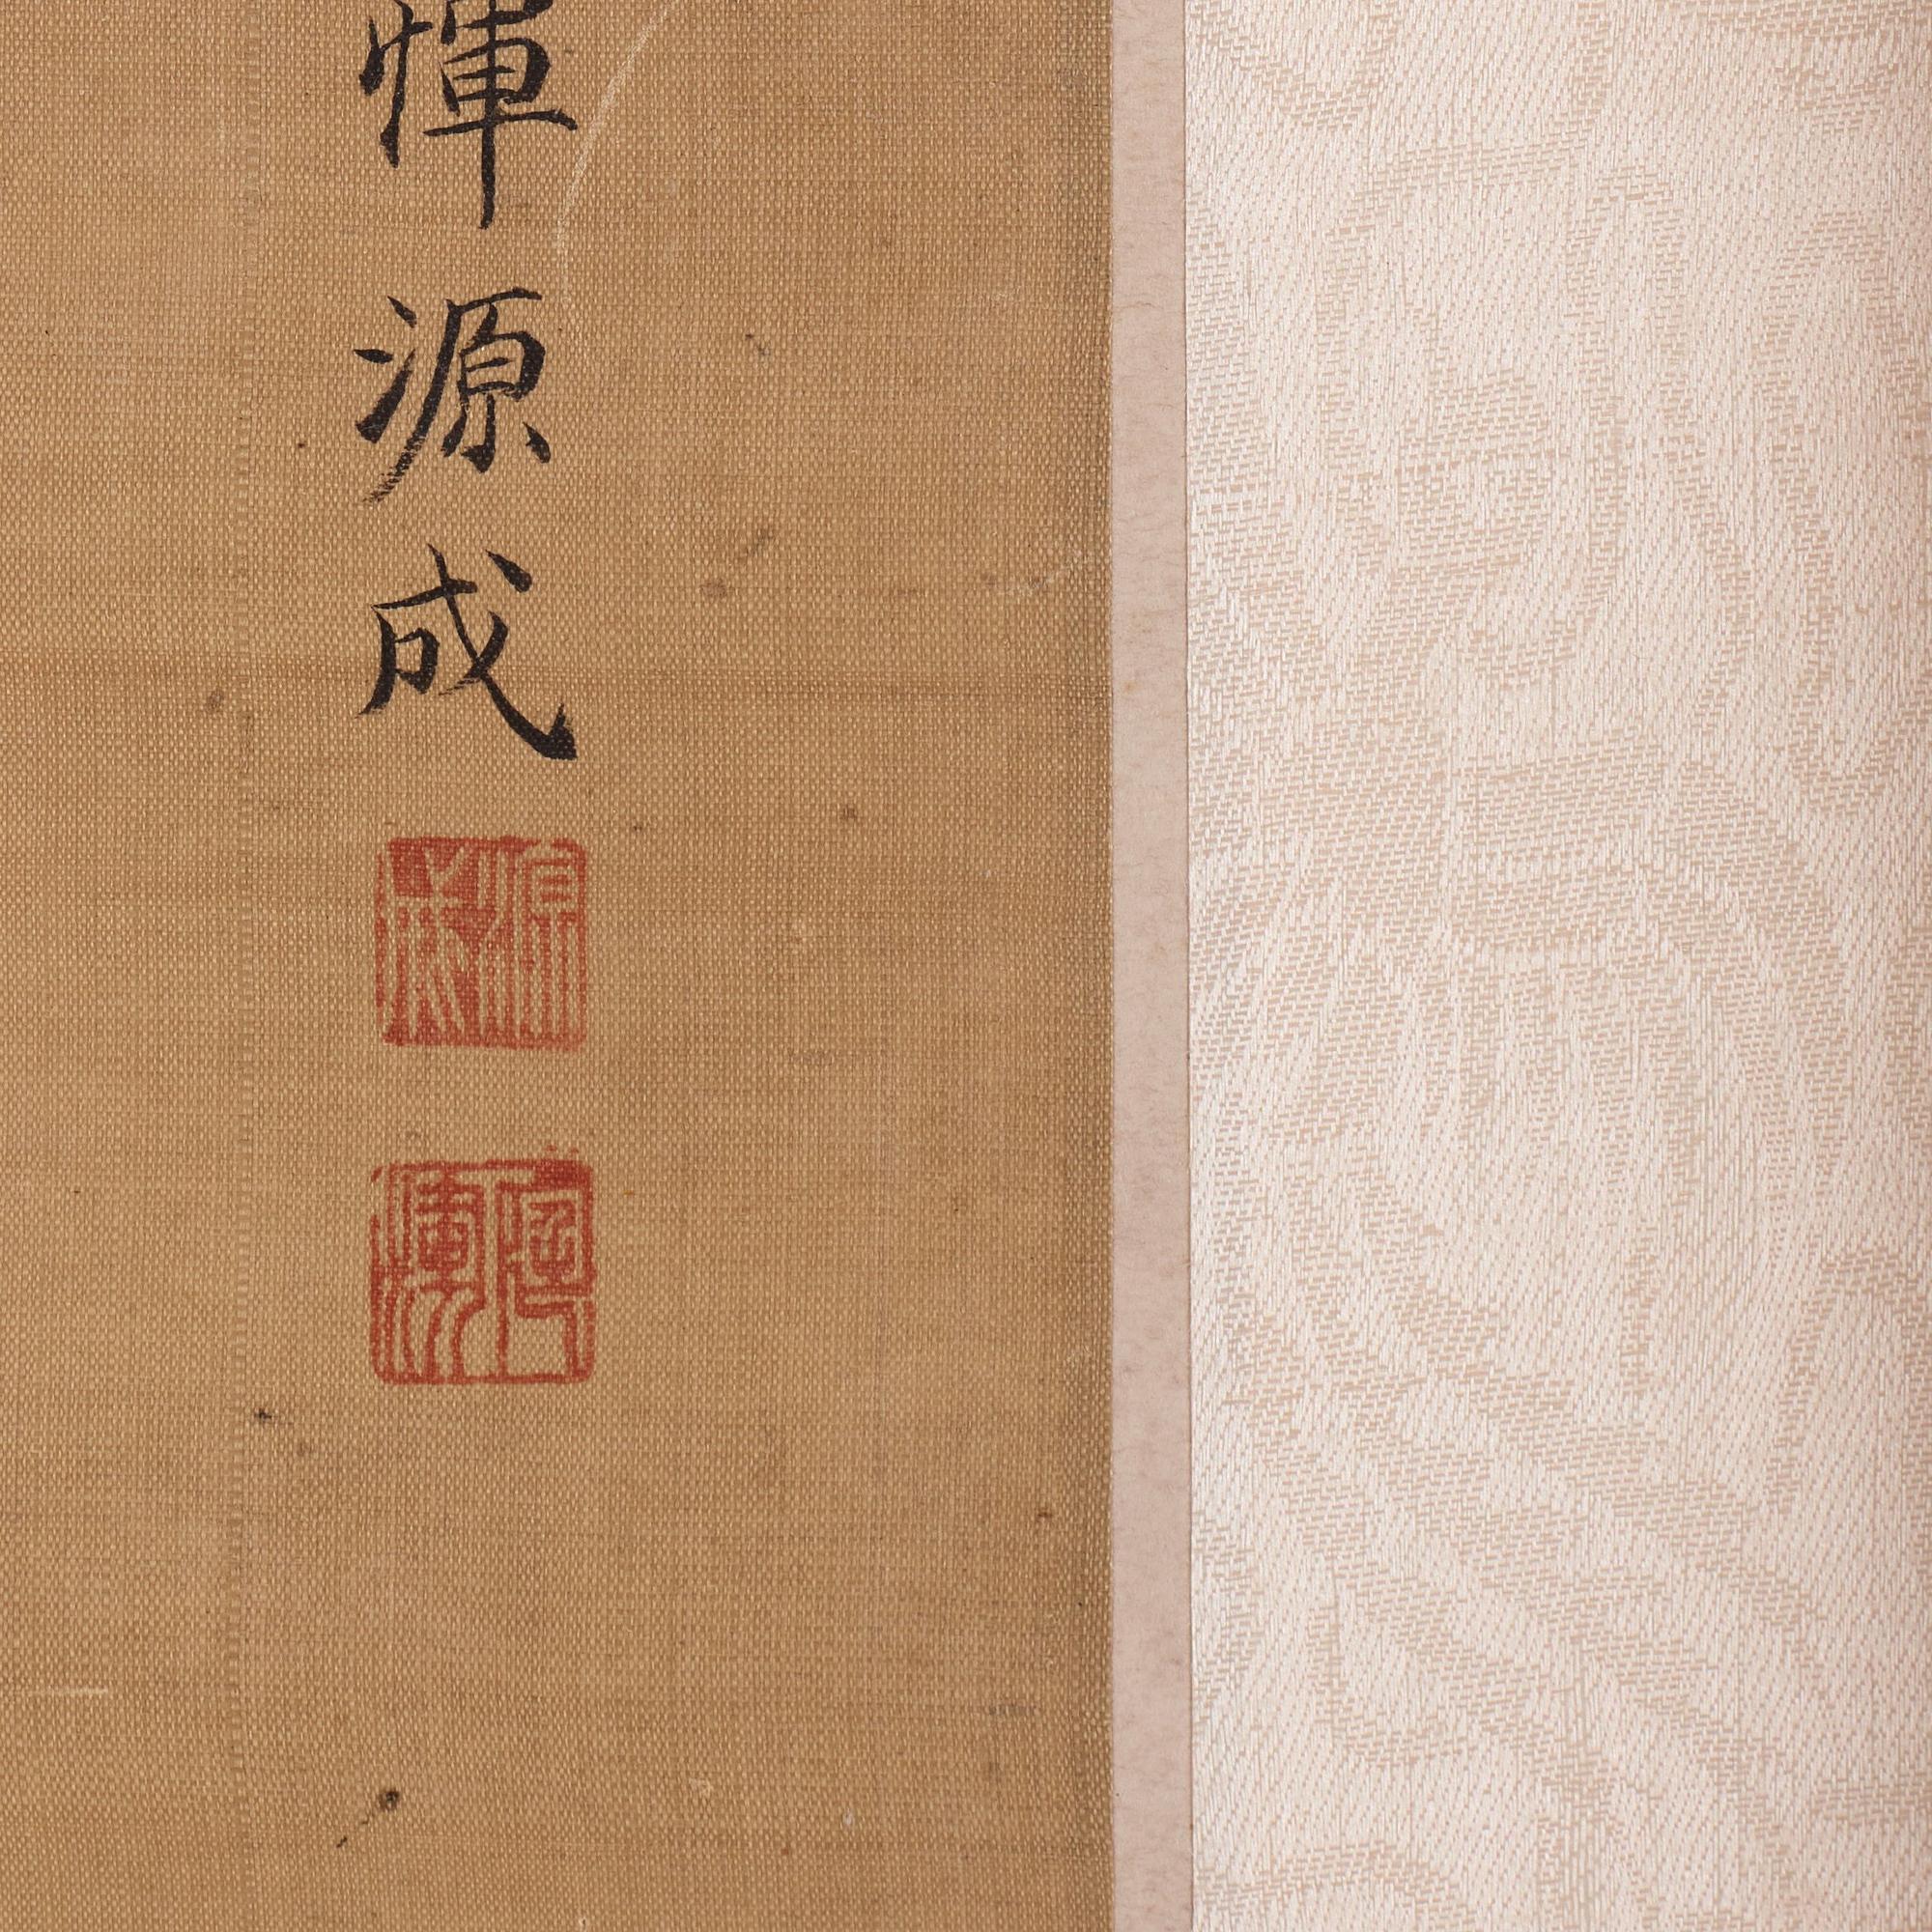 惲源成
源成